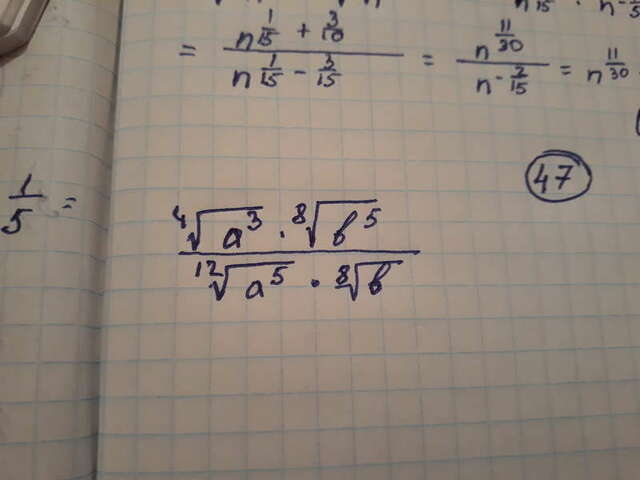 = n^(1/15 + 3/10) / n^(1/15 - 3/15) = n^(11/30) / n^(-2/15) = n^(11/30)
47
1/5 =
⁴√a³ · ⁸√b⁵
¹²√a⁵ · ⁸√b